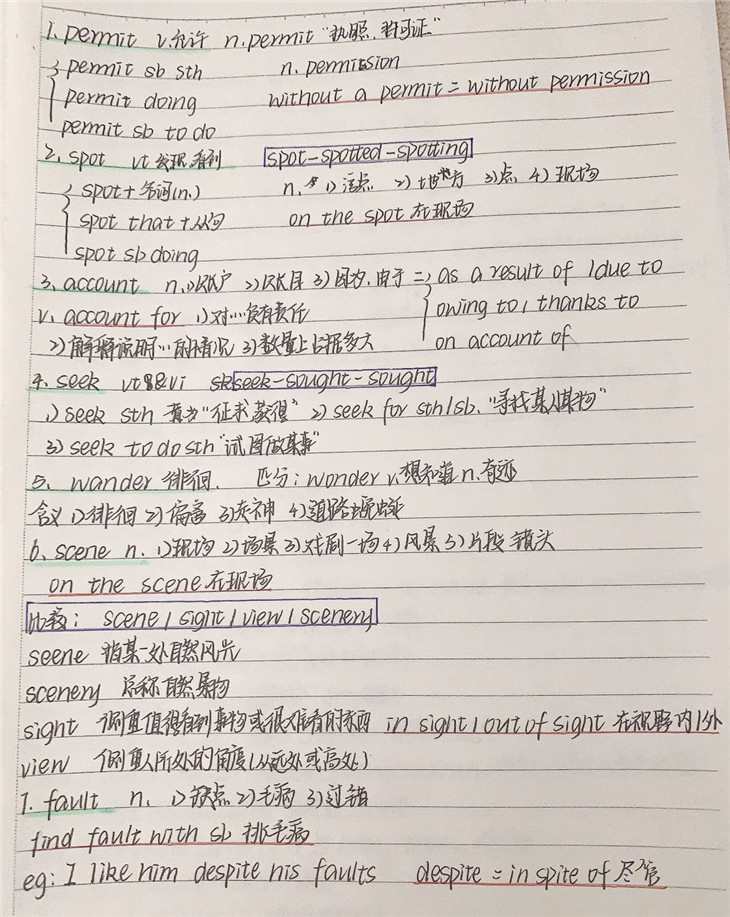 1. permit v.允许 n.permit "执照,许可证"
permit sb sth n. permission
permit doing without a permit = without permission
permit sb to do
2. spot vt 发现,看到 spot-spotted-spotting
spot+名词(n.) n. 1) 污点 2) 地方 3)点 4) 现场
spot that +从句 on the spot 在现场
spot sb doing
3. account n.1)账户 2)账目 3)因为,由于 = as a result of / due to
v. account for 1) 对…负有责任 owing to, thanks to
2) 解释说明…的情况 3)数量上占据多大 on account of
4. seek vt&vi seek-sought-sought
1) seek sth 意为"征求,获得" 2) seek for sth/sb. "寻找某人/某物"
3) seek to do sth "试图做某事"
5. wander 徘徊. 区分: wonder v.想知道 n.奇迹
含义 1)徘徊 2) 偏离 3)走神 4)道路蜿蜒
6. scene n. 1)现场 2)场景 3)戏剧一场 4)风景 5)片段 镜头
on the scene 在现场
比较: scene / sight / view / scenery
seene 指某一处自然风光
scenery 总称自然景物
sight 侧重值得看到事物或很难看的东西 in sight / out of sight 在视野内/外
view 侧重人所处的角度(从远处或高处)
7. fault n. 1) 缺点 2) 毛病 3)过错
find fault with sb 挑毛病
eg: I like him despite his faults despite = in spite of 尽管